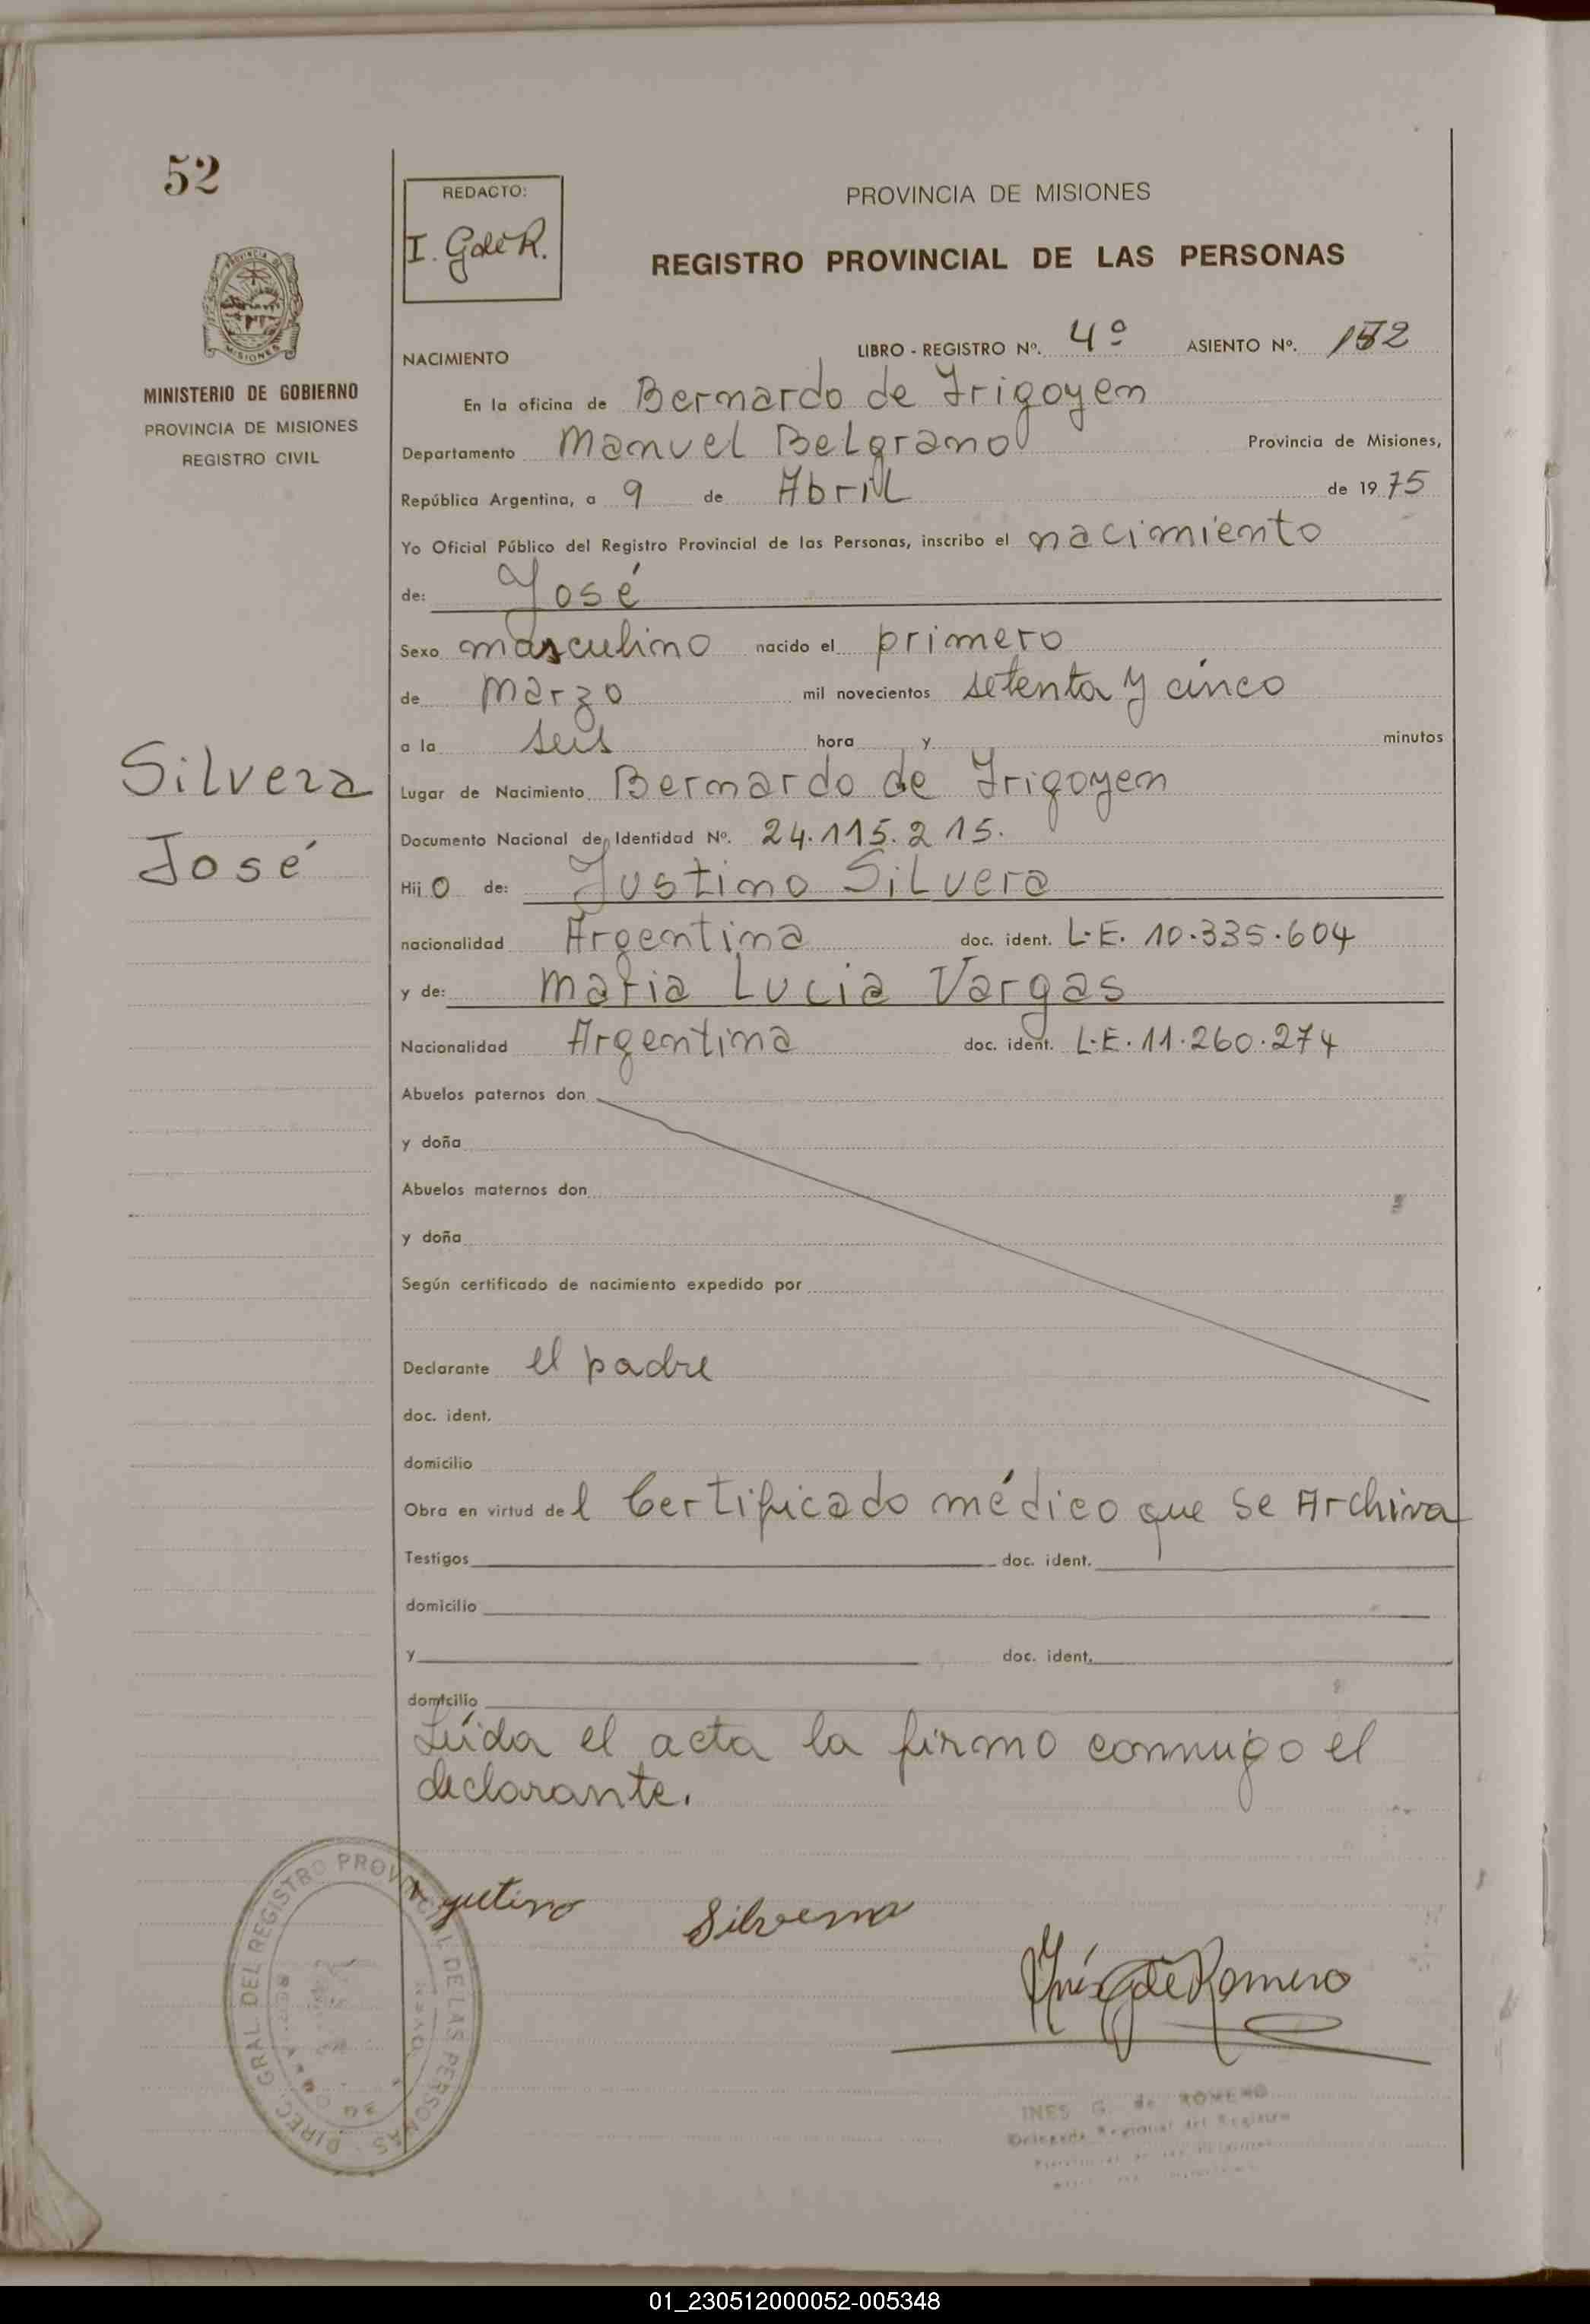 52
REDACTO:
I. G de R.
PROVINCIA DE MISIONES
REGISTRO PROVINCIAL DE LAS PERSONAS
MINISTERIO DE GOBIERNO
PROVINCIA DE MISIONES
REGISTRO CIVIL
NACIMIENTO LIBRO - REGISTRO Nº. 4º ASIENTO Nº. 152
En la oficina de Bernardo de Irigoyen
Departamento Manuel Belgrano Provincia de Misiones,
República Argentina, a 9 de Abril de 1975
Yo Oficial Público del Registro Provincial de las Personas, inscribo el nacimiento
de: José
Sexo masculino nacido el primero
de Marzo mil novecientos setenta y cinco
a la seis hora y minutos
Silvera
José
Lugar de Nacimiento Bernardo de Irigoyen
Documento Nacional de Identidad Nº. 24.115.215.
Hijo de: Justino Silvera
nacionalidad Argentina doc. ident. L.E. 10.335.604
y de: Maria Lucia Vargas
Nacionalidad Argentina doc. ident. L.E. 11.260.274
Abuelos paternos don
y doña
Abuelos maternos don
y doña
Según certificado de nacimiento expedido por
Declarante el padre
doc. ident.
domicilio
Obra en virtud del Certificado médico que se Archiva
Testigos doc. ident.
domicilio
y doc. ident.
domicilio
Leída el acta la firmo conmigo el
declarante.
Silvera
Inés G de Romero
DIREC. GRAL. DEL REGISTRO PROVINCIAL DE LAS PERSONAS
INES G. de ROMERO
Delegada Regional del Registro
01_230512000052-005348